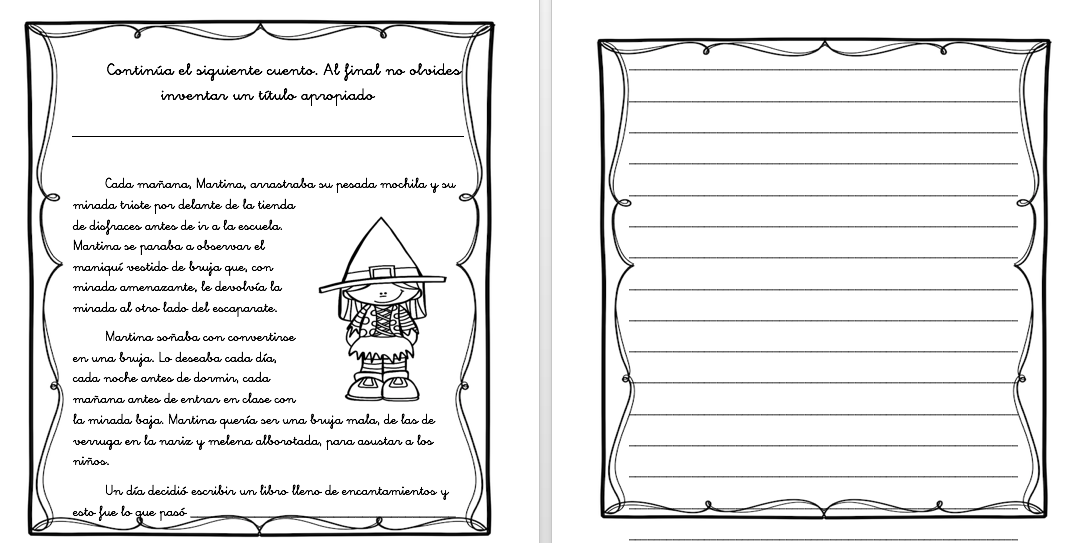 Continúa el siguiente cuento. Al final no olvides
inventar un título apropiado
Cada mañana, Martina, arrastraba su pesada mochila y su
mirada triste por delante de la tienda
de disfraces antes de ir a la escuela.
Martina se paraba a observar el
maniquí vestido de bruja que, con
mirada amenazante, le devolvía la
mirada al otro lado del escaparate.
Martina soñaba con convertirse
en una bruja. Lo deseaba cada día,
cada noche antes de dormir, cada
mañana antes de entrar en clase con
la mirada baja. Martina quería ser una bruja mala, de las de
verruga en la nariz y melena alborotada, para asustar a los
niños.
Un día decidió escribir un libro lleno de encantamientos y
esto fue lo que pasó